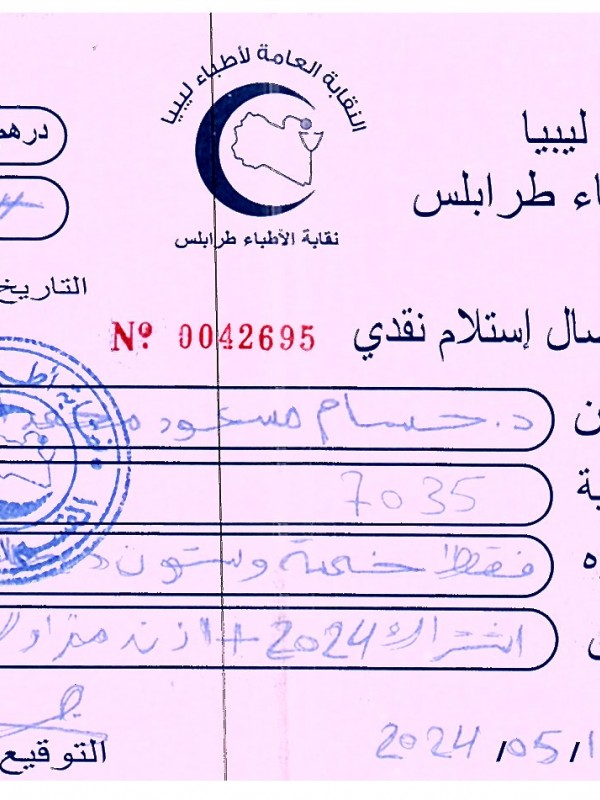 النقابة العامة لأطباء ليبيا
ليبيا
درهم
اء طرابلس
نقابة الأطباء طرابلس
التاريخ
صال إستلام نقدي
Nº 0042695
د. حسام مسعود محمد
ية 7035
ه فقط خمسة وستون د
اشتراك 2024 + اذن مزاولة
2024 /05/1
التوقيع